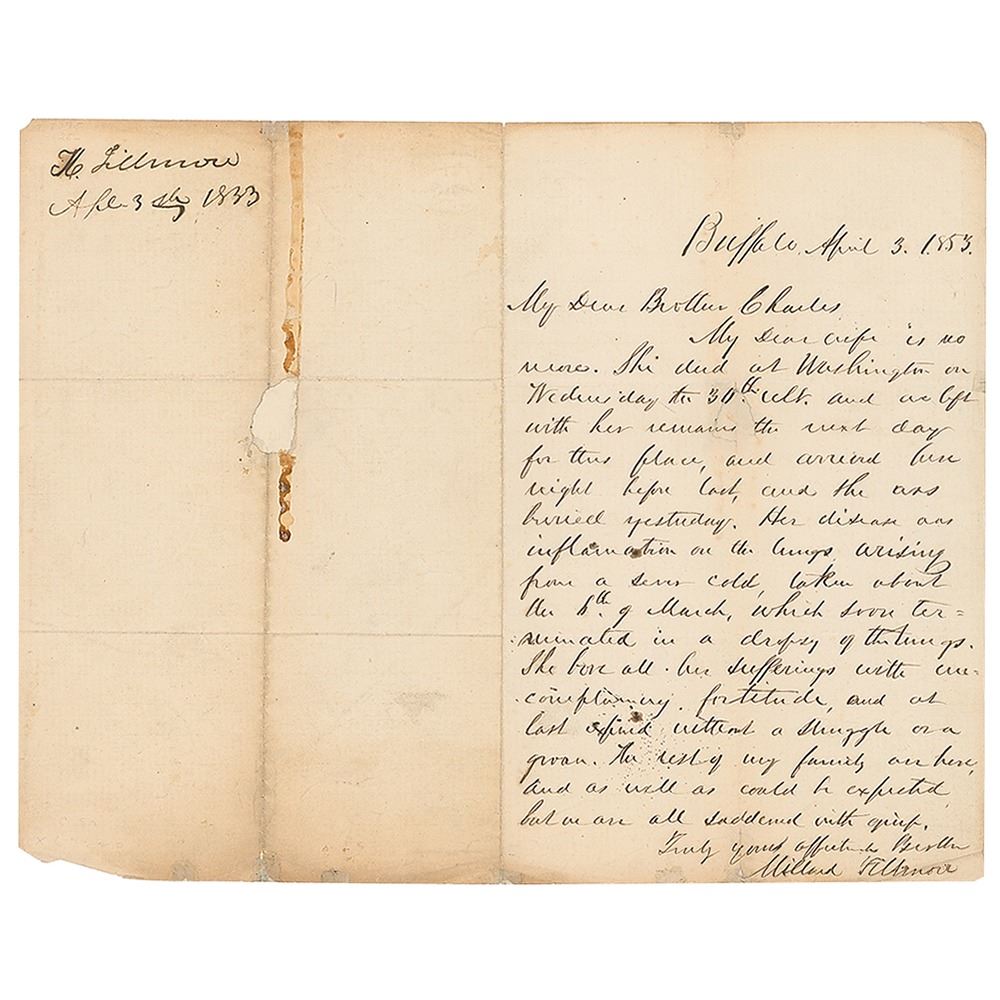 M. Fillmore
Apl. 3 1853
Buffalo, April 3. 1853.
My Dear Brother Charles
My Dear wife is no
more. She died at Washington on
Wednesday the 30th. ult. and we left
with her remains the next day
for this place, and arrived here
night before last, and she was
buried yesterday. Her disease was
inflamation on the lungs, arising
from a sever cold, taken about
the 6th. of March, which soon ter=
minated in a dropsy of the lungs.
She bore all her sufferings with un-
complaining fortitude, and at
last expired without a struggle or a
groan. The rest of my family are here,
and as well as could be expected
but we are all saddened with grief.
Truly yours affectiontn Brother
Millard Fillmore